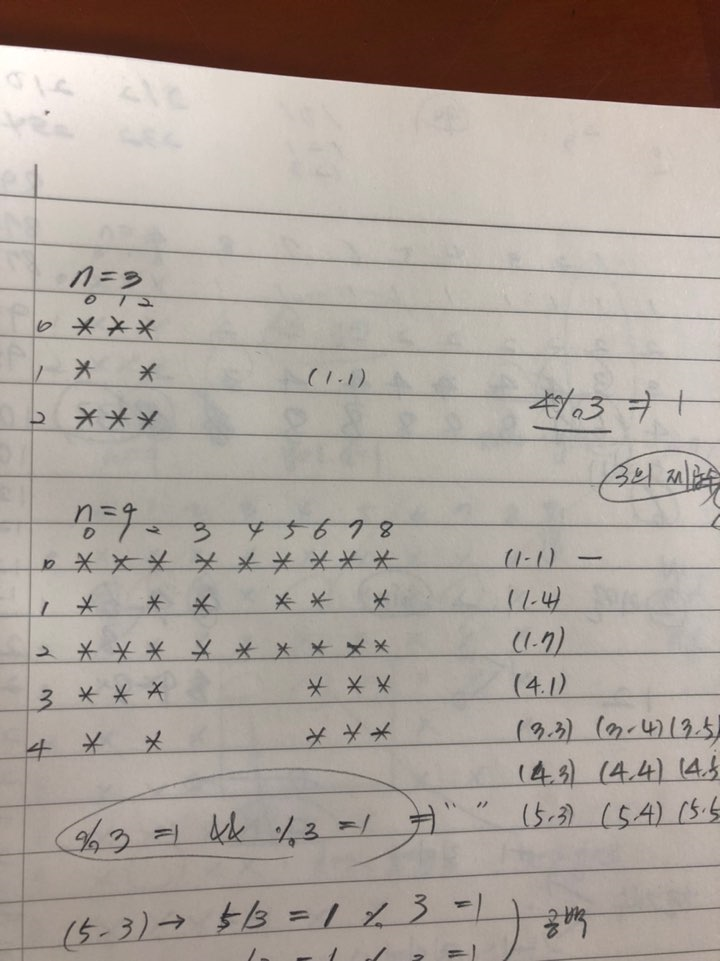 n=3
0 1 2
0 * * *
1 *   *   (1.1)
4%3 => 1
2 * * *
3의
n=9
0 1 2 3 4 5 6 7 8
0 * * * * * * * * *   (1.1) —
1 *   * *   * *   *   (1.4)
2 * * * * * * * * *   (1.7)
3 * * *       * * *   (4.1)
4 *   *       * * *   (3.3) (3.4) (3.5)
(4.3) (4.4) (4.5
(5.3) (5.4) (5.5
%3 =1 && %3 =1 => " "
(5.3) → 5/3 = 1 % 3 =1 ) 공백
= 1 % 3 =1